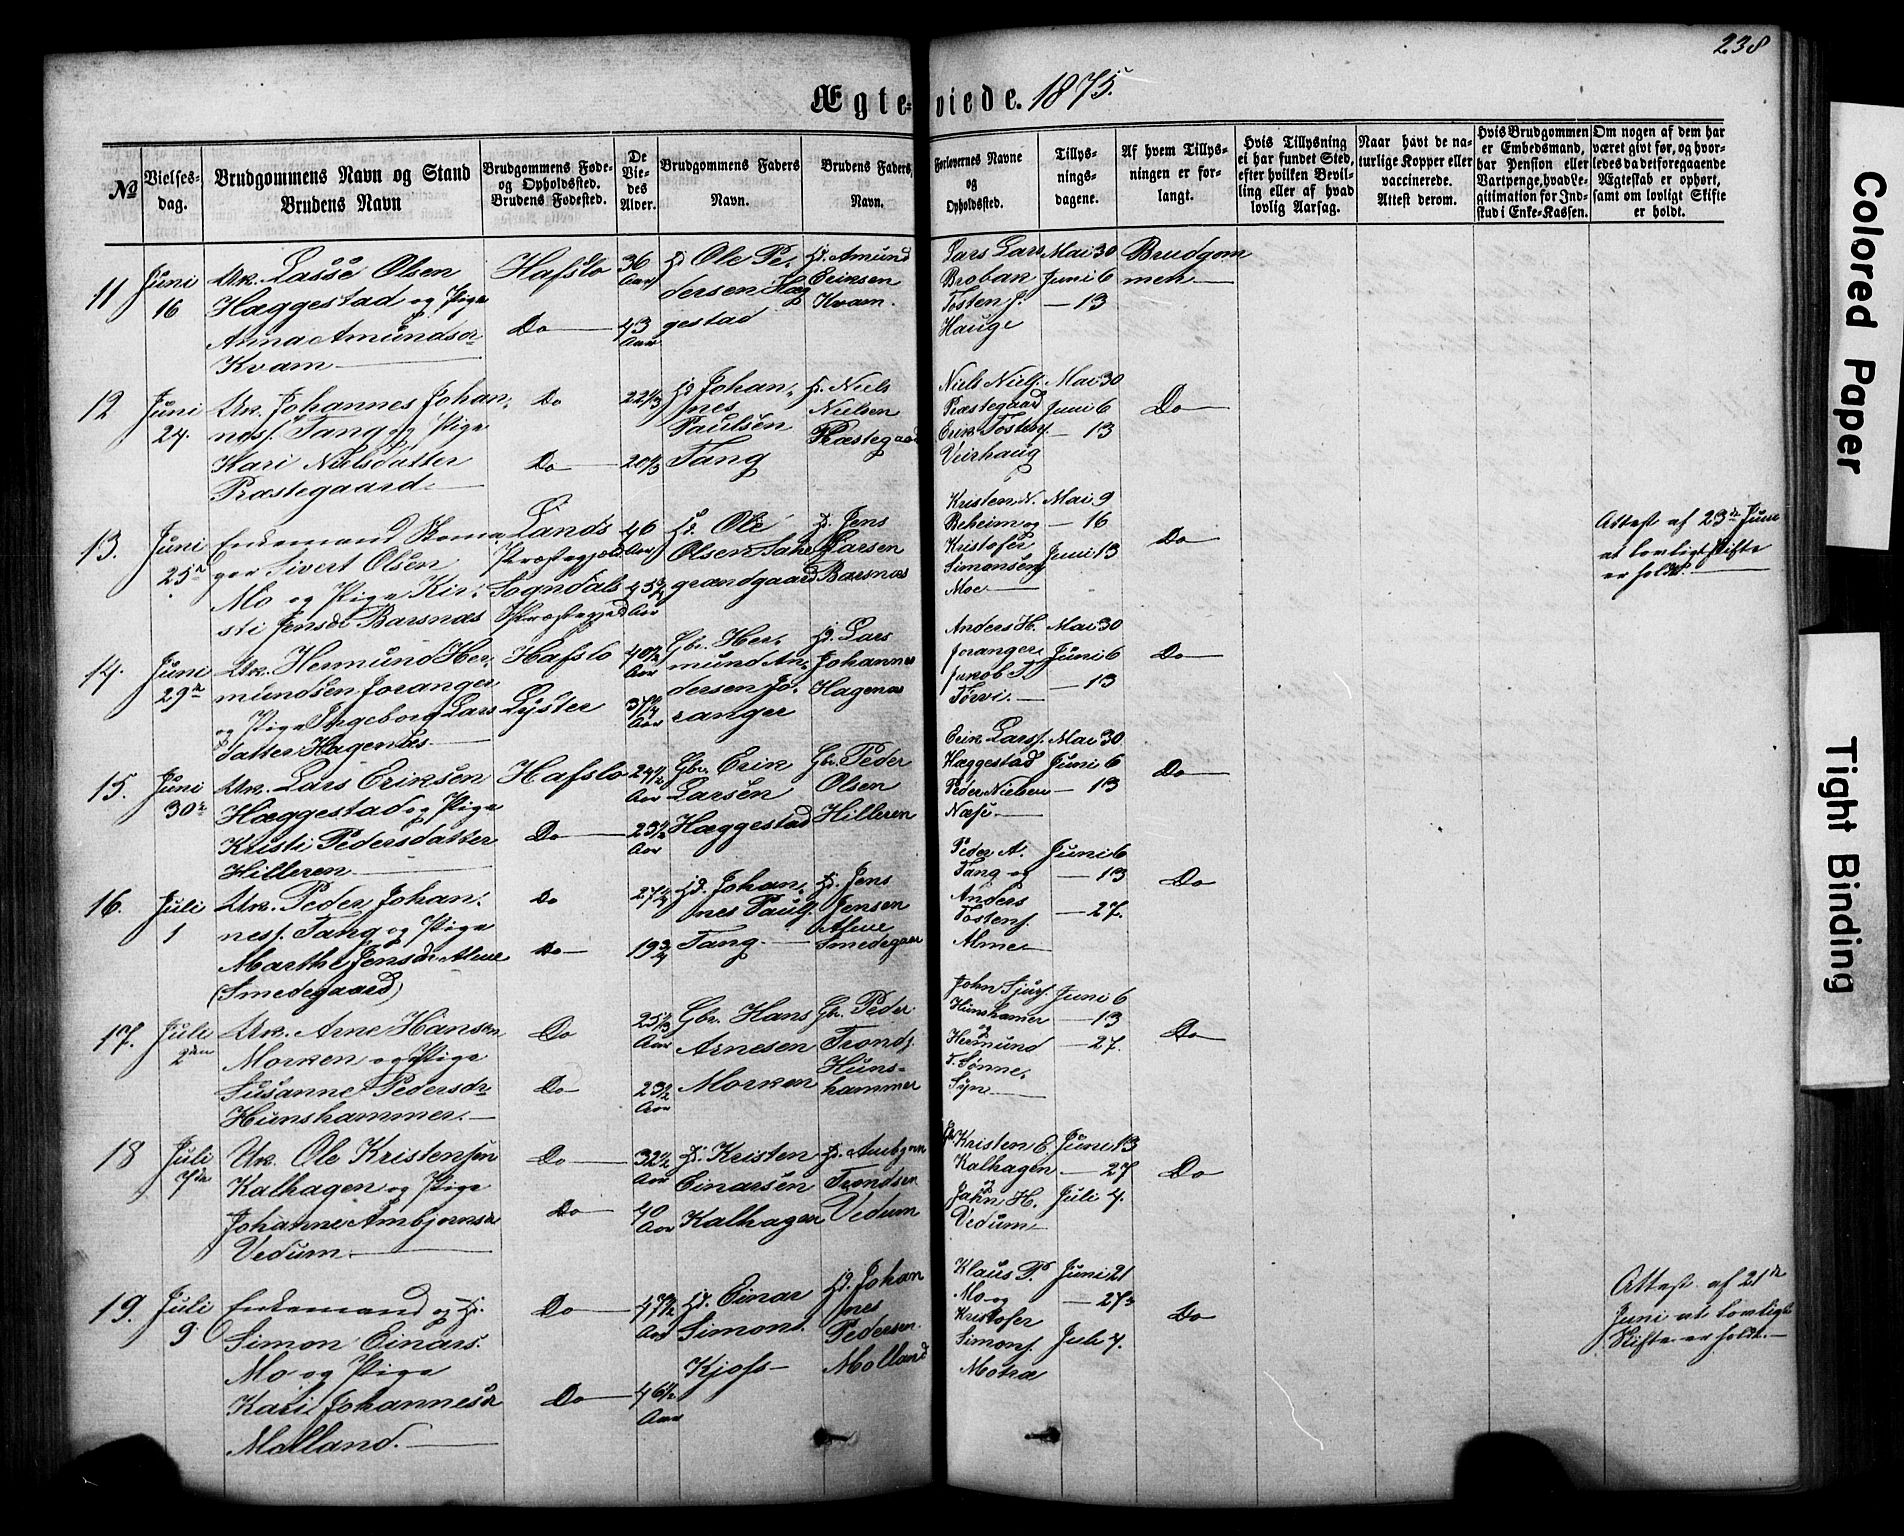 238
Ægteviede. 1875.
№
Vielsesdag.
Brudgommens Navn og Stand
Brudens Navn
Brudgommens Føde-
og Opholdssted.
Brudens Fødested.
De
Vie-
des
Alder.
Brudgommens Faders
Navn.
Brudens Faders
Navn.
Forlovernes Navne
og
Opholdssted.
Tillys-
nings-
dagene.
Af hvem Tillys-
ningen er for-
langt.
Hvis Tillysning
ei har fundet Sted,
efter hvilken Bevil-
ling eller af hvad
lovlig Aarsag.
Naar havt de na-
turlige Kopper eller
vaccinerede.
Attest derom.
Hvis Brudgommen
er Embedsmand,
har Pension eller
Vartpenge, hvad Le-
gitimation for Ind-
skud i Enke-Kassen.
Om nogen af dem har
været givt før, og hvor-
ledes da det foregaaende
Ægteskab er ophørt,
samt om lovligt Skifte
er holdt.
11 Juni 16
Uk. Lasse Olsen
Hæggestad og Pige
Anna Amundsdr
Kvam
Hafslo
Do
36 Aar
43 Aar
Ole Pe-
dersen Hæg
gestad
Amund
Eriksen
Kvam.
Lars Lars
Brobak
Tosten J.
Hauge
Mai 30
Juni 6
— 13
Brudgom
men
12 Juni 24.
Uk. Johannes Johan-
nesf. Tang og Pige
Kari Nielsdatter
Præstegaard
Do
Do
22 1/3
20 1/3
Johan-
nes
Paulsen
Tang
Niels
Nielsen
Præstegaard
Niels Niels.
Præstegaard
Erik Tostens.
Veirhaug
Mai 30
Juni 6
— 13
Do
13. Juni 25de
Enkemand Skoma-
ger Sivert Olsen
Mo og Pige Kir-
sti Jensdr Barsnæs
Lands
Præstegjeld
Sogndals
Præstegjeld
46 Aar
45 3/4 Aar
Ole
Olsen
grændgaard
Jens
Larsen
Barsnæs
Kristen N.
Beheim og
Kristofer
Simonsen
Moe
Mai 9
— 16
Juni 13
Do
Attest af 23de Juni
at lovligt Skifte
er holdt.
14. Juni 29de
Uk. Hermund Her-
mundsen Joranger
og Pige Ingeborg Lars
datter Hagenæs
Hafslo
Lyster
40 1/2 Aar
37 Aar
Gbr. Her-
mund An-
dersen Jo-
ranger
Lars
Johannes
Hagenæs
Anders H.
Joranger
Jakob T.
Torvi
Mai 30
Juni 6
— 13
Do
15. Juni 30te
Uk. Lars Eriksen
Hæggestad og Pige
Kristi Pedersdatter
Hilleren
Hafslo
Do
24 1/2 Aar
23 1/2 Aar
Gbr. Erik
Larsen
Hæggestad
Gbr. Peder
Olsen
Hilleren
Erik Larsf.
Hæggestad
Peder Nielsen
Næse
Mai 30
Juni 6
— 13
Do
16. Juli 1
Uk. Peder Johan-
nesf. Tang og Pige
Marthe Jensdr Alme
(Smedegaard)
Do
Do
27 1/4
19 3/4
Johan-
nes Pauls.
Tang
Jens
Jensen
Alme
Smedegaar
Peder A.
Tang og
Anders
Tostenf.
Alme
Juni 6
— 13
— 27.
Do
17. Juli 2den
Uk. Arne Hansen
Morken og Pige
Susanne Pedersdr
Hunshammer
Do
Do
25 1/3 Aar
23 1/2 Aar
Gbr. Hans
Arnesen
Morken
Gbr. Peder
Tronds.
Huns-
hammer
John Sjurs.
Hunshamer
og
Hermund
T. Sønne-
Syn
Juni 6
— 13
— 27.
Do
18 Juli
Uk. Ole Kristensen
Kalhagen og Pige
Johanne Ambjørnsdr
Vedum
Do
Do
32 1/2 Aar
40 Aar
Kristen
Einarsen
Kalhagen
Ambjørn
Trondsen
Vedum
Kristen E.
Kalhagen
og
John H.
Vedum
Juni 13
— 27
Juli 4.
Do
19. Juli 9
Enkemand og
Simon Einars.
Mo og Pige
Kari Johannesdr
Molland.
Do
Do
47 1/2 Aar
46 1/2 Aar
Einar
Simons.
Kjos
Johan
nes
Pedersen
Molland
Klaus P.
Mo og
Kristofer
Simons.
Motræ
Juni 21
— 27
Juli 4.
Do
Attest af 21de
Juni at lovligt
Skifte er holdt.
Colored Paper
Tight Binding